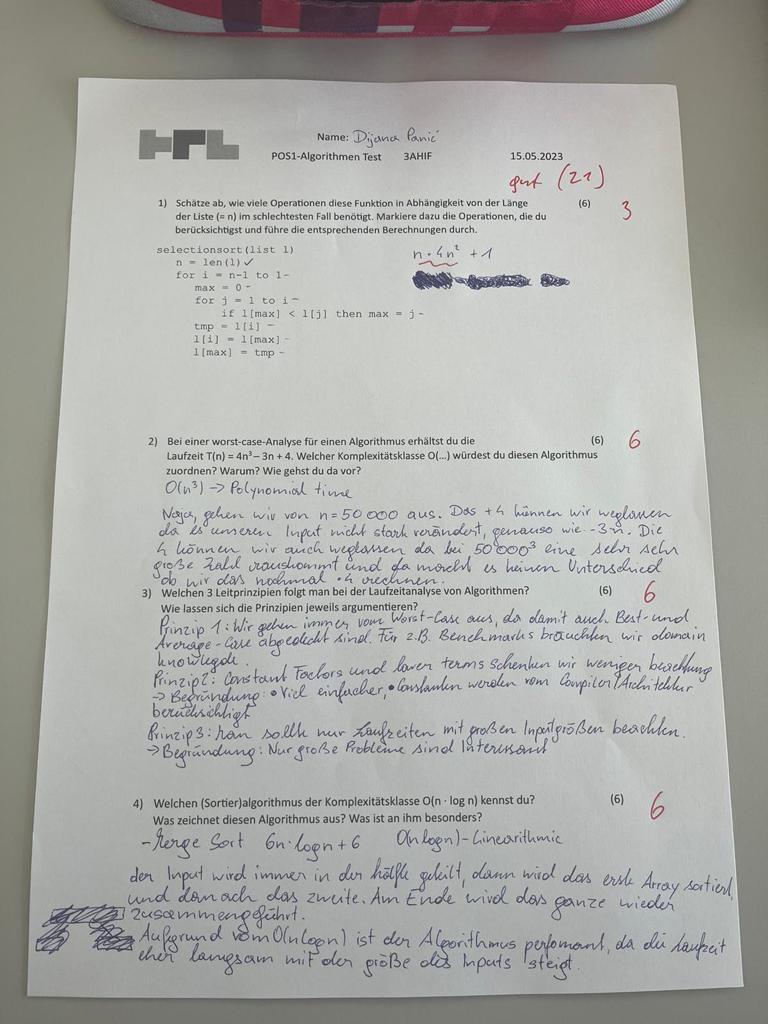 HTL
Name: Dijana Panić
POS1-Algorithmen Test 3AHIF 15.05.2023
gut (21)
1) Schätze ab, wie viele Operationen diese Funktion in Abhängigkeit von der Länge (6) 3
der Liste (= n) im schlechtesten Fall benötigt. Markiere dazu die Operationen, die du
berücksichtigst und führe die entsprechenden Berechnungen durch.
selectionsort(list l)
n · 4n² + 1
n = len(l) ✓
for i = n-1 to 1-
max = 0 -
for j = 1 to i -
if l[max] < l[j] then max = j -
tmp = l[i] -
l[i] = l[max] -
l[max] = tmp -
2) Bei einer worst-case-Analyse für einen Algorithmus erhältst du die (6) 6
Laufzeit T(n) = 4n³ – 3n + 4. Welcher Komplexitätsklasse O(...) würdest du diesen Algorithmus
zuordnen? Warum? Wie gehst du da vor?
O(n³) -> Polynomial time
Naja, gehen wir von n = 50 000 aus. Das +4 können wir weglassen
da es unseren Input nicht stark verändert, genauso wie -3n. Die
4 können wir auch weglassen da bei 50'000³ eine sehr sehr
große Zahl rauskommt und da macht es keinen Unterschied
ob wir das nochmal · 4 rechnen.
3) Welchen 3 Leitprinzipien folgt man bei der Laufzeitanalyse von Algorithmen? (6) 6
Wie lassen sich die Prinzipien jeweils argumentieren?
Prinzip 1: Wir gehen immer vom Worst-Case aus, da damit auch Best- und
Average-Case abgedeckt sind. Für z.B. Benchmarks bräuchten wir domain
knowlegde.
Prinzip 2: Constant Factors und lower terms schenken wir weniger beachtung
-> Begründung: • Viel einfacher, • Constanten werden vom Compiler/Architektur
berücksichtigt
Prinzip 3: Man sollte nur Laufzeiten mit großen Inputgrößen beachten.
-> Begründung: Nur große Probleme sind Interessant
4) Welchen (Sortier)algorithmus der Komplexitätsklasse O(n · log n) kennst du? (6) 6
Was zeichnet diesen Algorithmus aus? Was ist an ihm besonders?
- Merge Sort 6n · logn + 6 O(n logn) - Linearithmic
der Input wird immer in der hälfte geteilt, dann wird das erste Array sortiert,
und danach das zweite. Am Ende wird das ganze wieder
zusammengeführt.
Aufgrund vom O(nlogn) ist der Algorithmus perfomant, da die Laufzeit
eher langsam mit der größe des Inputs steigt.